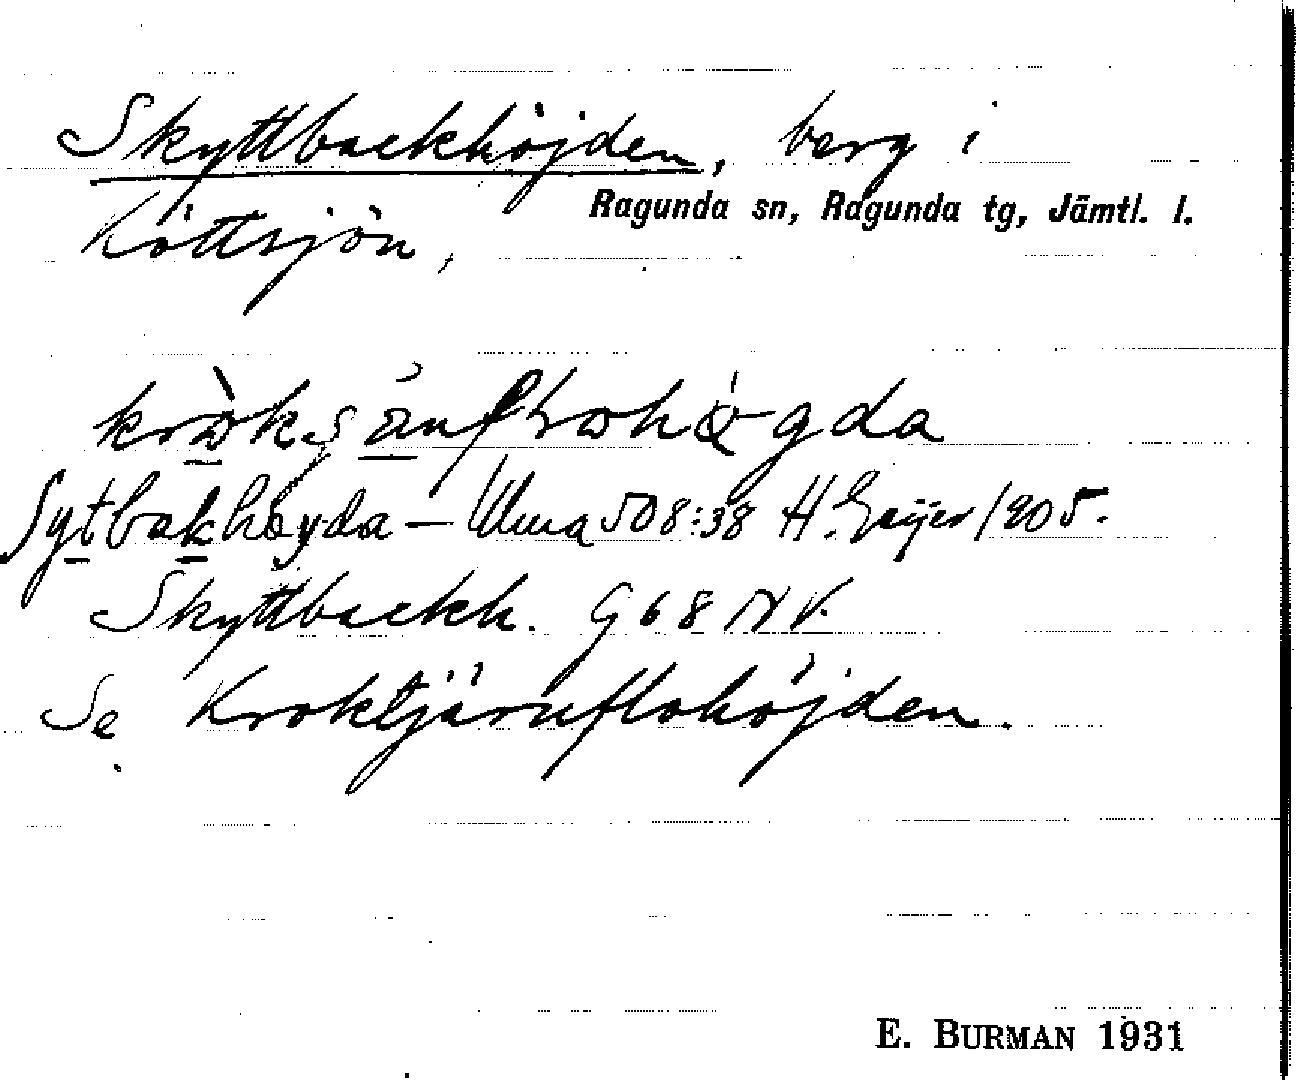 Skyttbackhöjden, berg i
Ragunda sn, Ragunda tg, Jämtl. l.
Köttsjön,
Sytbakhøyda – Ulma 508:38 H. Geijer 1905.
Skyttbackh. G 68 N V.
Se Kroktjärnflohöjden.
E. BURMAN 1931